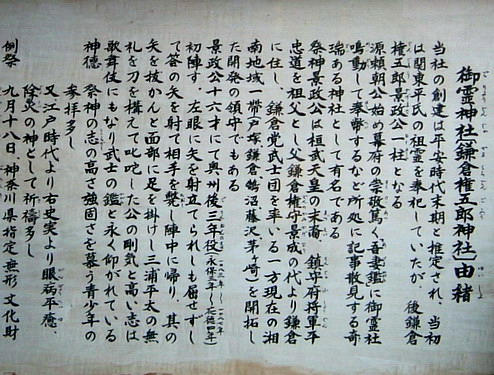 御霊神社(鎌倉権五郎神社)由緒
当社の創建は平安時代末期と推定され、当初
は関東平氏の祖霊を奉祀していたが、後鎌倉
権五郎景政公一柱となる
源頼朝公始め幕府の崇敬篤く吾妻鑑に御霊社
鳴動して奉幣するなど所処に記事散見する奇
瑞ある神社として有名である
祭神景政公は桓武天皇の末裔、鎮守府将軍平
忠道を祖父とし父鎌倉権守景成の代より鎌倉
に住し、鎌倉党武士団を率いる一方現在の湘
南地域一帯(戸塚鎌倉鵠沼藤沢茅ヶ崎)を開拓し
た開発の領守でもある
景政公十六才にて奥州後三年役(永保三年~
初陣す。左眼に矢を射立てられしも屈せずし
て答の矢を射て相手を斃し陣中に帰り、其の
矢を抜かんと面部に足を掛けし三浦平太の無
礼を刀を構えて叱咤した公の剛気と高い志は
歌舞伎にもなり武士の鑑と永く仰がれている
神徳 祭神の志の高さ強固さを慕う青少年の
参拝多し
又江戸時代より右史実より眼病平癒、
除災の神として祈禱多し
例祭 九月十八日、神奈川県指定無形文化財